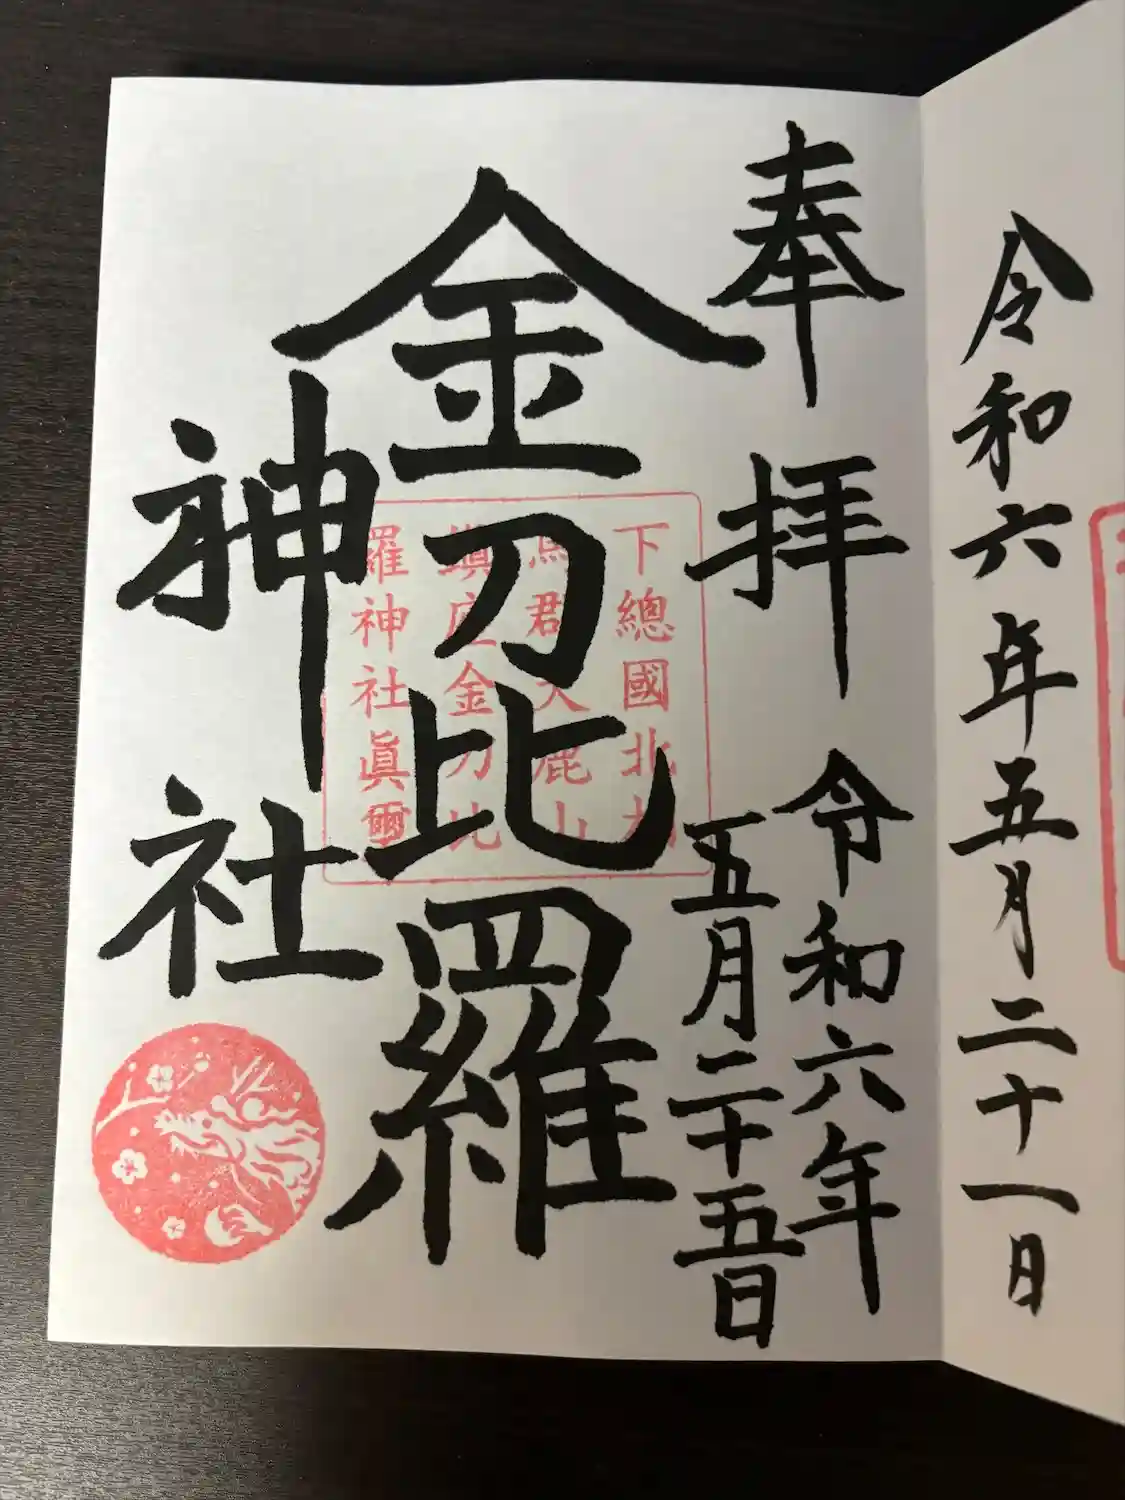 令和六年五月二十一日
奉拝
令和六年
五月二十五日
金刀比羅
神社
下總國北相
馬群大鹿山
塡座金刀比
羅神社眞璽